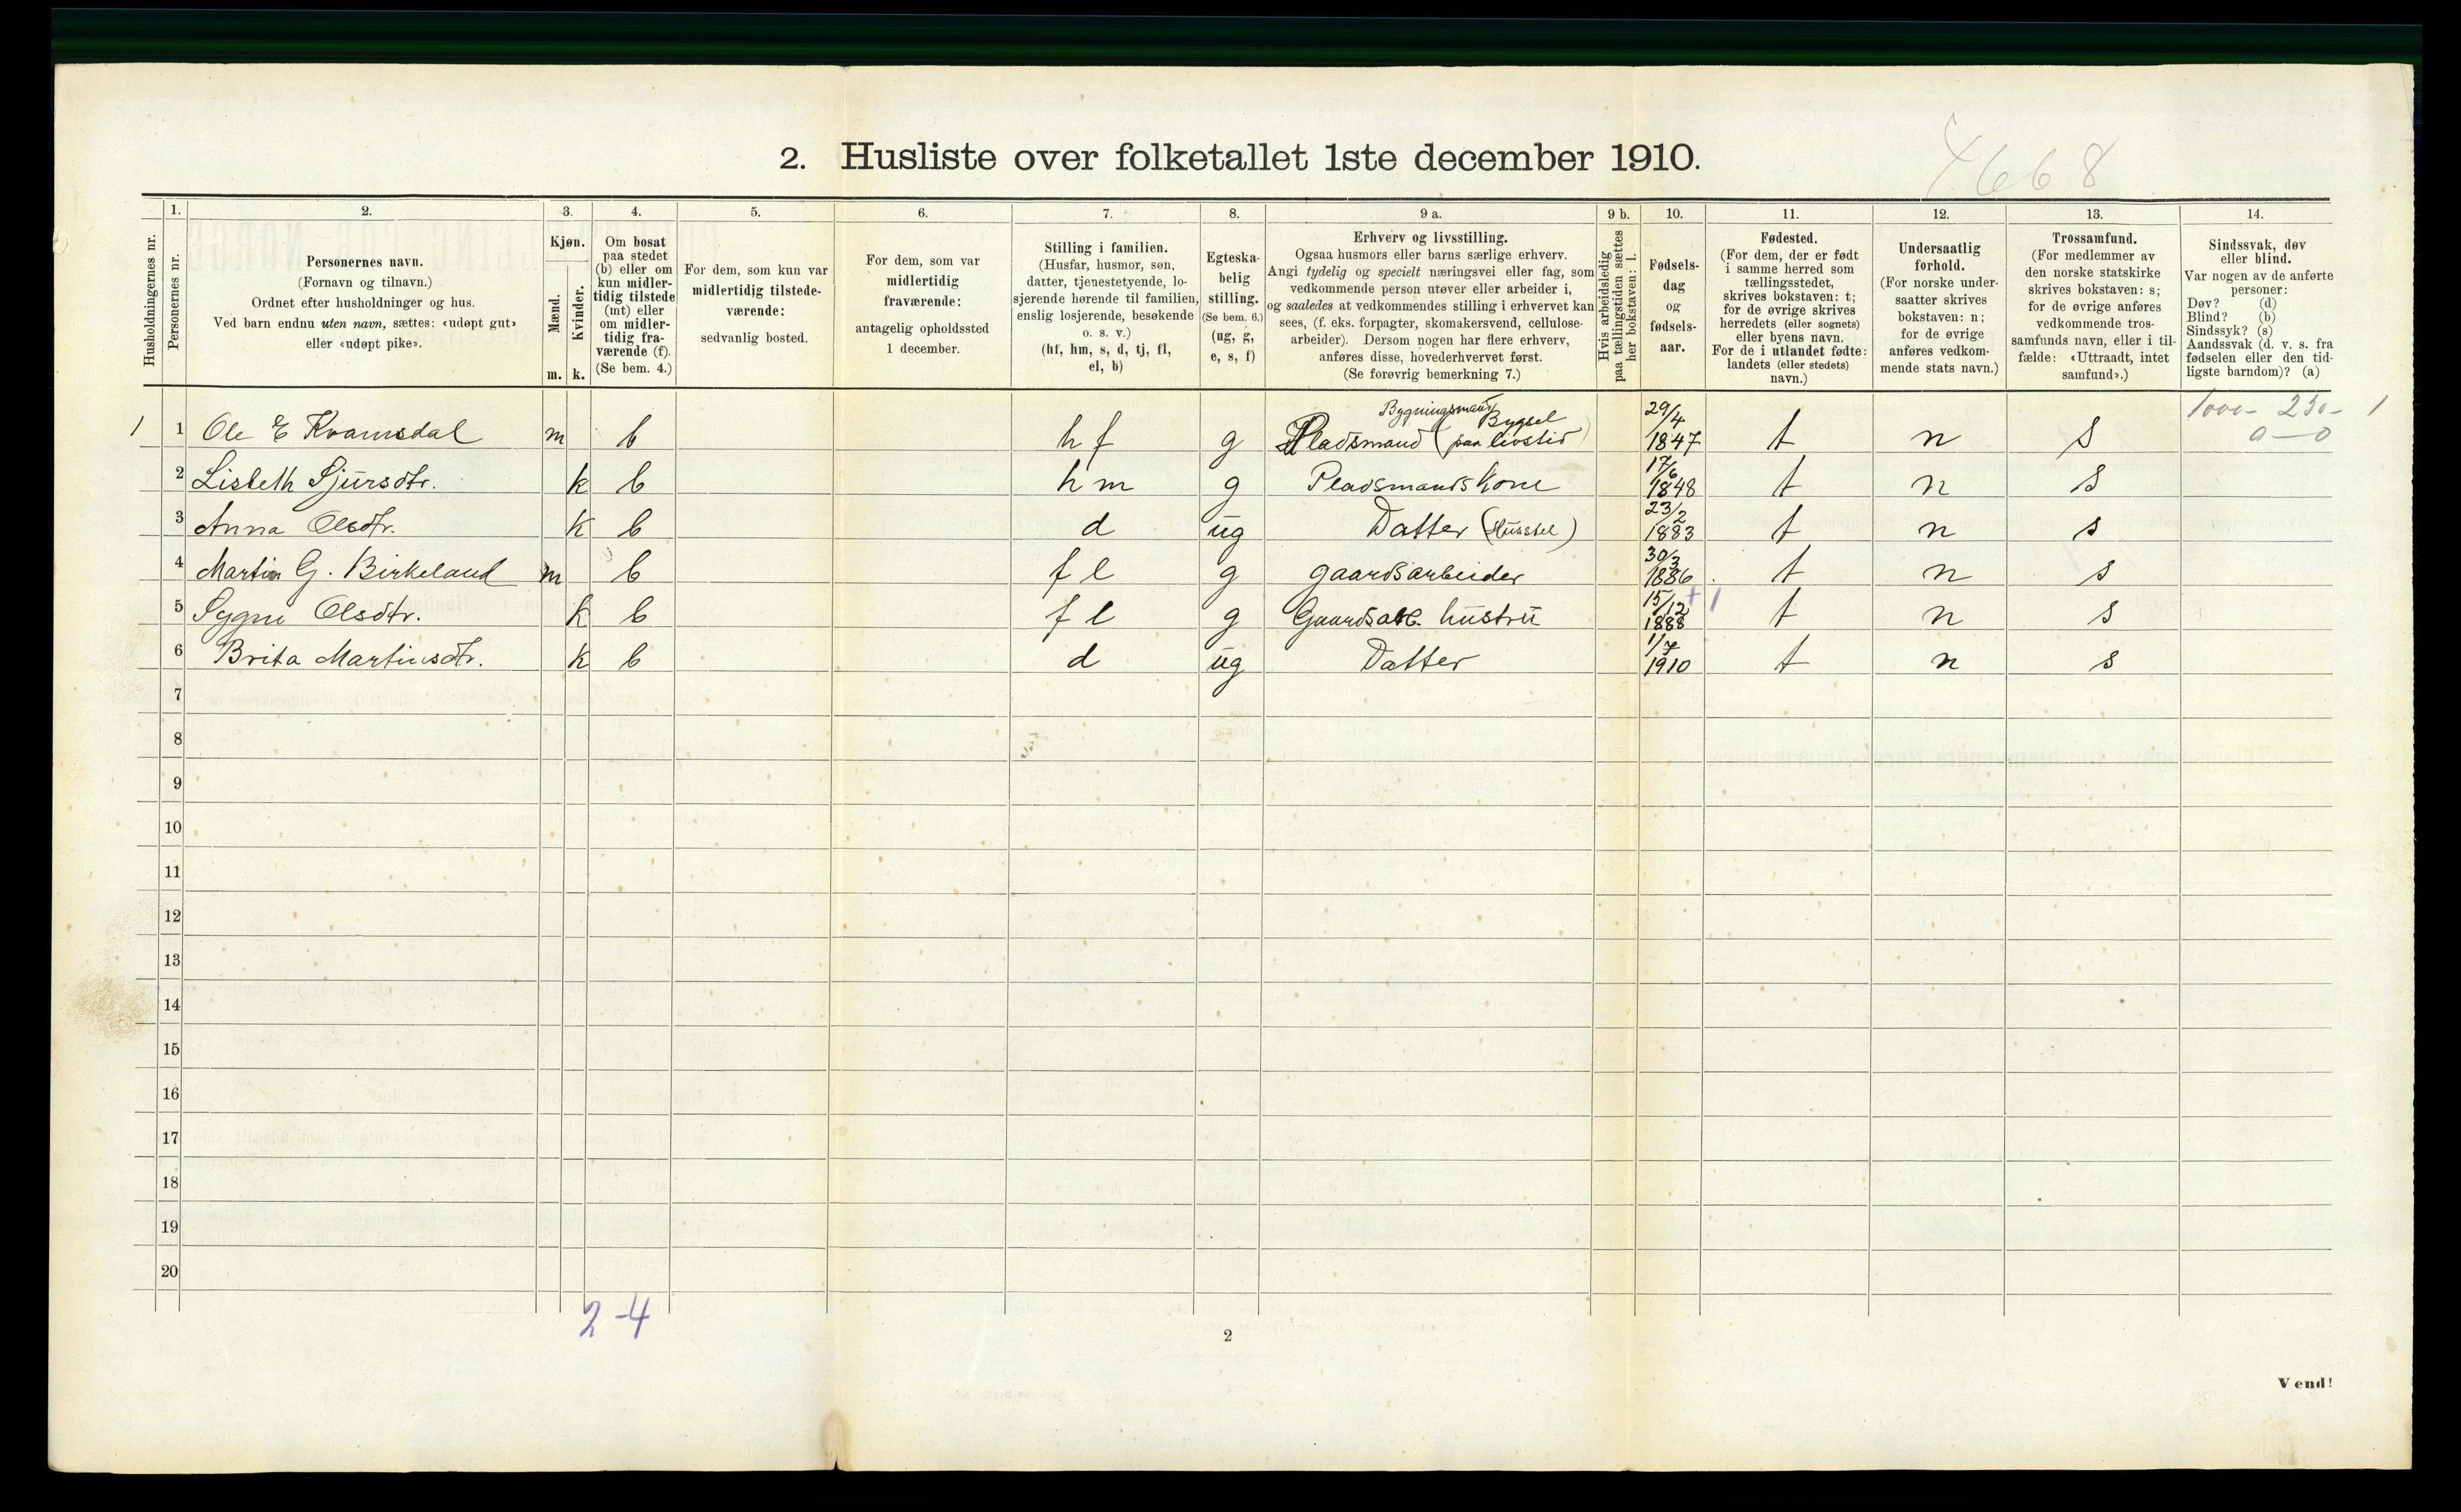 4668
2. Husliste over folketallet 1ste december 1910.
Husholdningernes nr.
1.
Personernes nr.
2.
Personernes navn.
(Fornavn og tilnavn.)
Ordnet efter husholdninger og hus.
Ved barn endnu uten navn, sættes: «udøpt gut»
eller «udøpt pike».
3.
Kjøn.
Mænd.
Kvinder.
m. k.
4.
Om bosat
paa stedet
(b) eller om
kun midler-
tidig tilstede
(mt) eller
om midler-
tidig fra-
værende (f).
(Se bem. 4.)
5.
For dem, som kun var
midlertidig tilstede-
værende:
sedvanlig bosted.
6.
For dem, som var
midlertidig
fraværende:
antagelig opholdssted
1 december.
7.
Stilling i familien.
(Husfar, husmor, søn,
datter, tjenestetyende, lo-
sjerende hørende til familien,
enslig losjerende, besøkende
o. s. v.)
(hf, hm, s, d, tj, fl,
el, b)
8.
Egteska-
belig
stilling.
(Se bem. 6.)
(ug, g,
e, s, f)
9 a.
Erhverv og livsstilling.
Ogsaa husmors eller barns særlige erhverv.
Angi tydelig og specielt næringsvei eller fag, som
vedkommende person utøver eller arbeider i,
og saaledes at vedkommendes stilling i erhvervet kan
sees, (f. eks. forpagter, skomakersvend, cellulose-
arbeider). Dersom nogen har flere erhverv,
anføres disse, hovederhvervet først.
(Se forøvrig bemerkning 7.)
9 b.
Hvis arbeidsledig
paa tællingstiden sættes
her bokstaven: l.
10.
Fødsels-
dag
og
fødsels-
aar.
11.
Fødested.
(For dem, der er født
i samme herred som
tællingsstedet,
skrives bokstaven: t;
for de øvrige skrives
herredets (eller sognets)
eller byens navn.
For de i utlandet fødte:
landets (eller stedets)
navn.)
12.
Undersaatlig
forhold.
(For norske under-
saatter skrives
bokstaven: n;
for de øvrige
anføres vedkom-
mende stats navn.)
13.
Trossamfund.
(For medlemmer av
den norske statskirke
skrives bokstaven: s;
for de øvrige anføres
vedkommende tros-
samfunds navn, eller i til-
fælde: «Uttraadt, intet
samfund».)
14.
Sindssvak, døv
eller blind.
Var nogen av de anførte
personer:
Døv? (d)
Blind? (b)
Sindssyk? (s)
Aandssvak (d. v. s. fra
fødselen eller den tid-
ligste barndom)? (a)
1000- 250- 1
0-0
1 1 Ole E Kvamsdal m b hf g Pladsmand (Bygsel paa livstid) Bygningsmand 29/4 1847 t n s
2 Lisbeth Sjursdtr. k b hm g Pladsmands Kone 17/6 1848 t n s
3 Anna Olsdtr. k b d ug Datter (Husstel) 23/2 1883 t n s
4 Martin G. Birkeland m b fl g gaardsarbeider 30/3 1886 t n s
5 Sygni Olsdtr. k b fl g Gaardsarb. hustru 15/12 1888 + 1 t n s
6 Brita Martinsdtr. k b d ug Datter 1/7 1910 t n s
7
8
9
10
11
12
13
14
15
16
17
18
19
20
2-4
2
Vend!